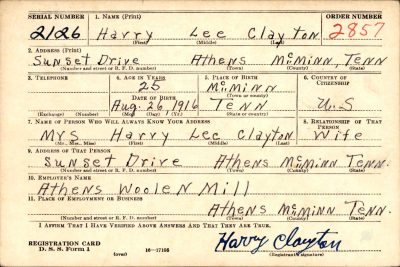 SERIAL NUMBER 1. NAME (Print) ORDER NUMBER
2126 Harry Lee Clayton 2857
(First) (Middle) (Last)
2. ADDRESS (Print)
Sunset Drive Athens McMinn, Tenn
(Number and street or R. F. D. number) (Town) (County) (State)
3. TELEPHONE 4. AGE IN YEARS 5. PLACE OF BIRTH 6. COUNTRY OF CITIZENSHIP
25 McMinn
DATE OF BIRTH (Town or county)
Aug. 26 1916 Tenn U.S
(Exchange) (Number) (Mo.) (Day) (Yr.) (State or country)
7. NAME OF PERSON WHO WILL ALWAYS KNOW YOUR ADDRESS 8. RELATIONSHIP OF THAT PERSON
Mrs Harry Lee Clayton Wife
(Mr., Mrs., Miss) (First) (Middle) (Last)
9. ADDRESS OF THAT PERSON
Sunset Drive Athens McMinn Tenn.
(Number and street or R. F. D. number) (Town) (County) (State)
10. EMPLOYER'S NAME
Athens Woolen Mill
11. PLACE OF EMPLOYMENT OR BUSINESS
Athens McMinn Tenn.
(Number and street or R. F. D. number) (Town) (County) (State)
I AFFIRM THAT I HAVE VERIFIED ABOVE ANSWERS AND THAT THEY ARE TRUE.
REGISTRATION CARD
D. S. S. Form 1 (over) 16—17105 Harry Clayton
(Registrant's signature)